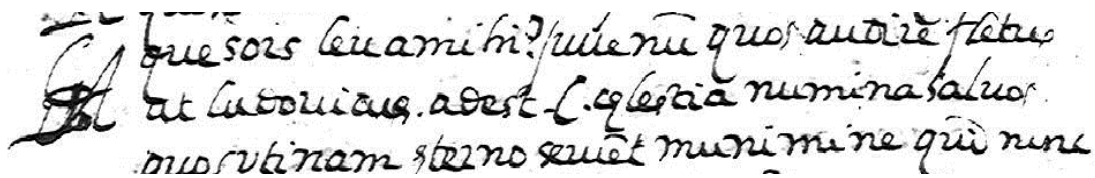 que sors leua mihi? Juuenū quos audirē flētus
Sol at ludouicus. adest. L. cęlestia numina saluos
quos vtinam eterno seruēt munimine quī nunc